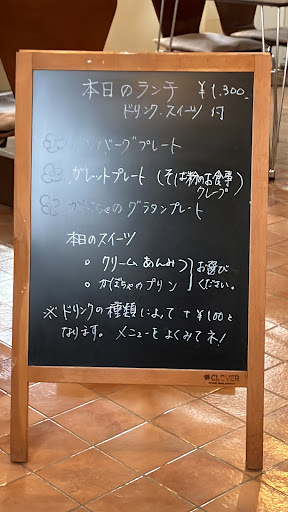 本日のランチ ￥1,300-
ドリンク・スイーツ 付
ハンバーグプレート
ガレットプレート (そば粉のお食事クレープ)
かぼちゃの グラタンプレート
本日のスイーツ
○ クリームあんみつ
○ かぼちゃのプリン
お選びください。
※ドリンクの種類によって +￥100と
なります。 メニューをよくみてネ!
CLOVER